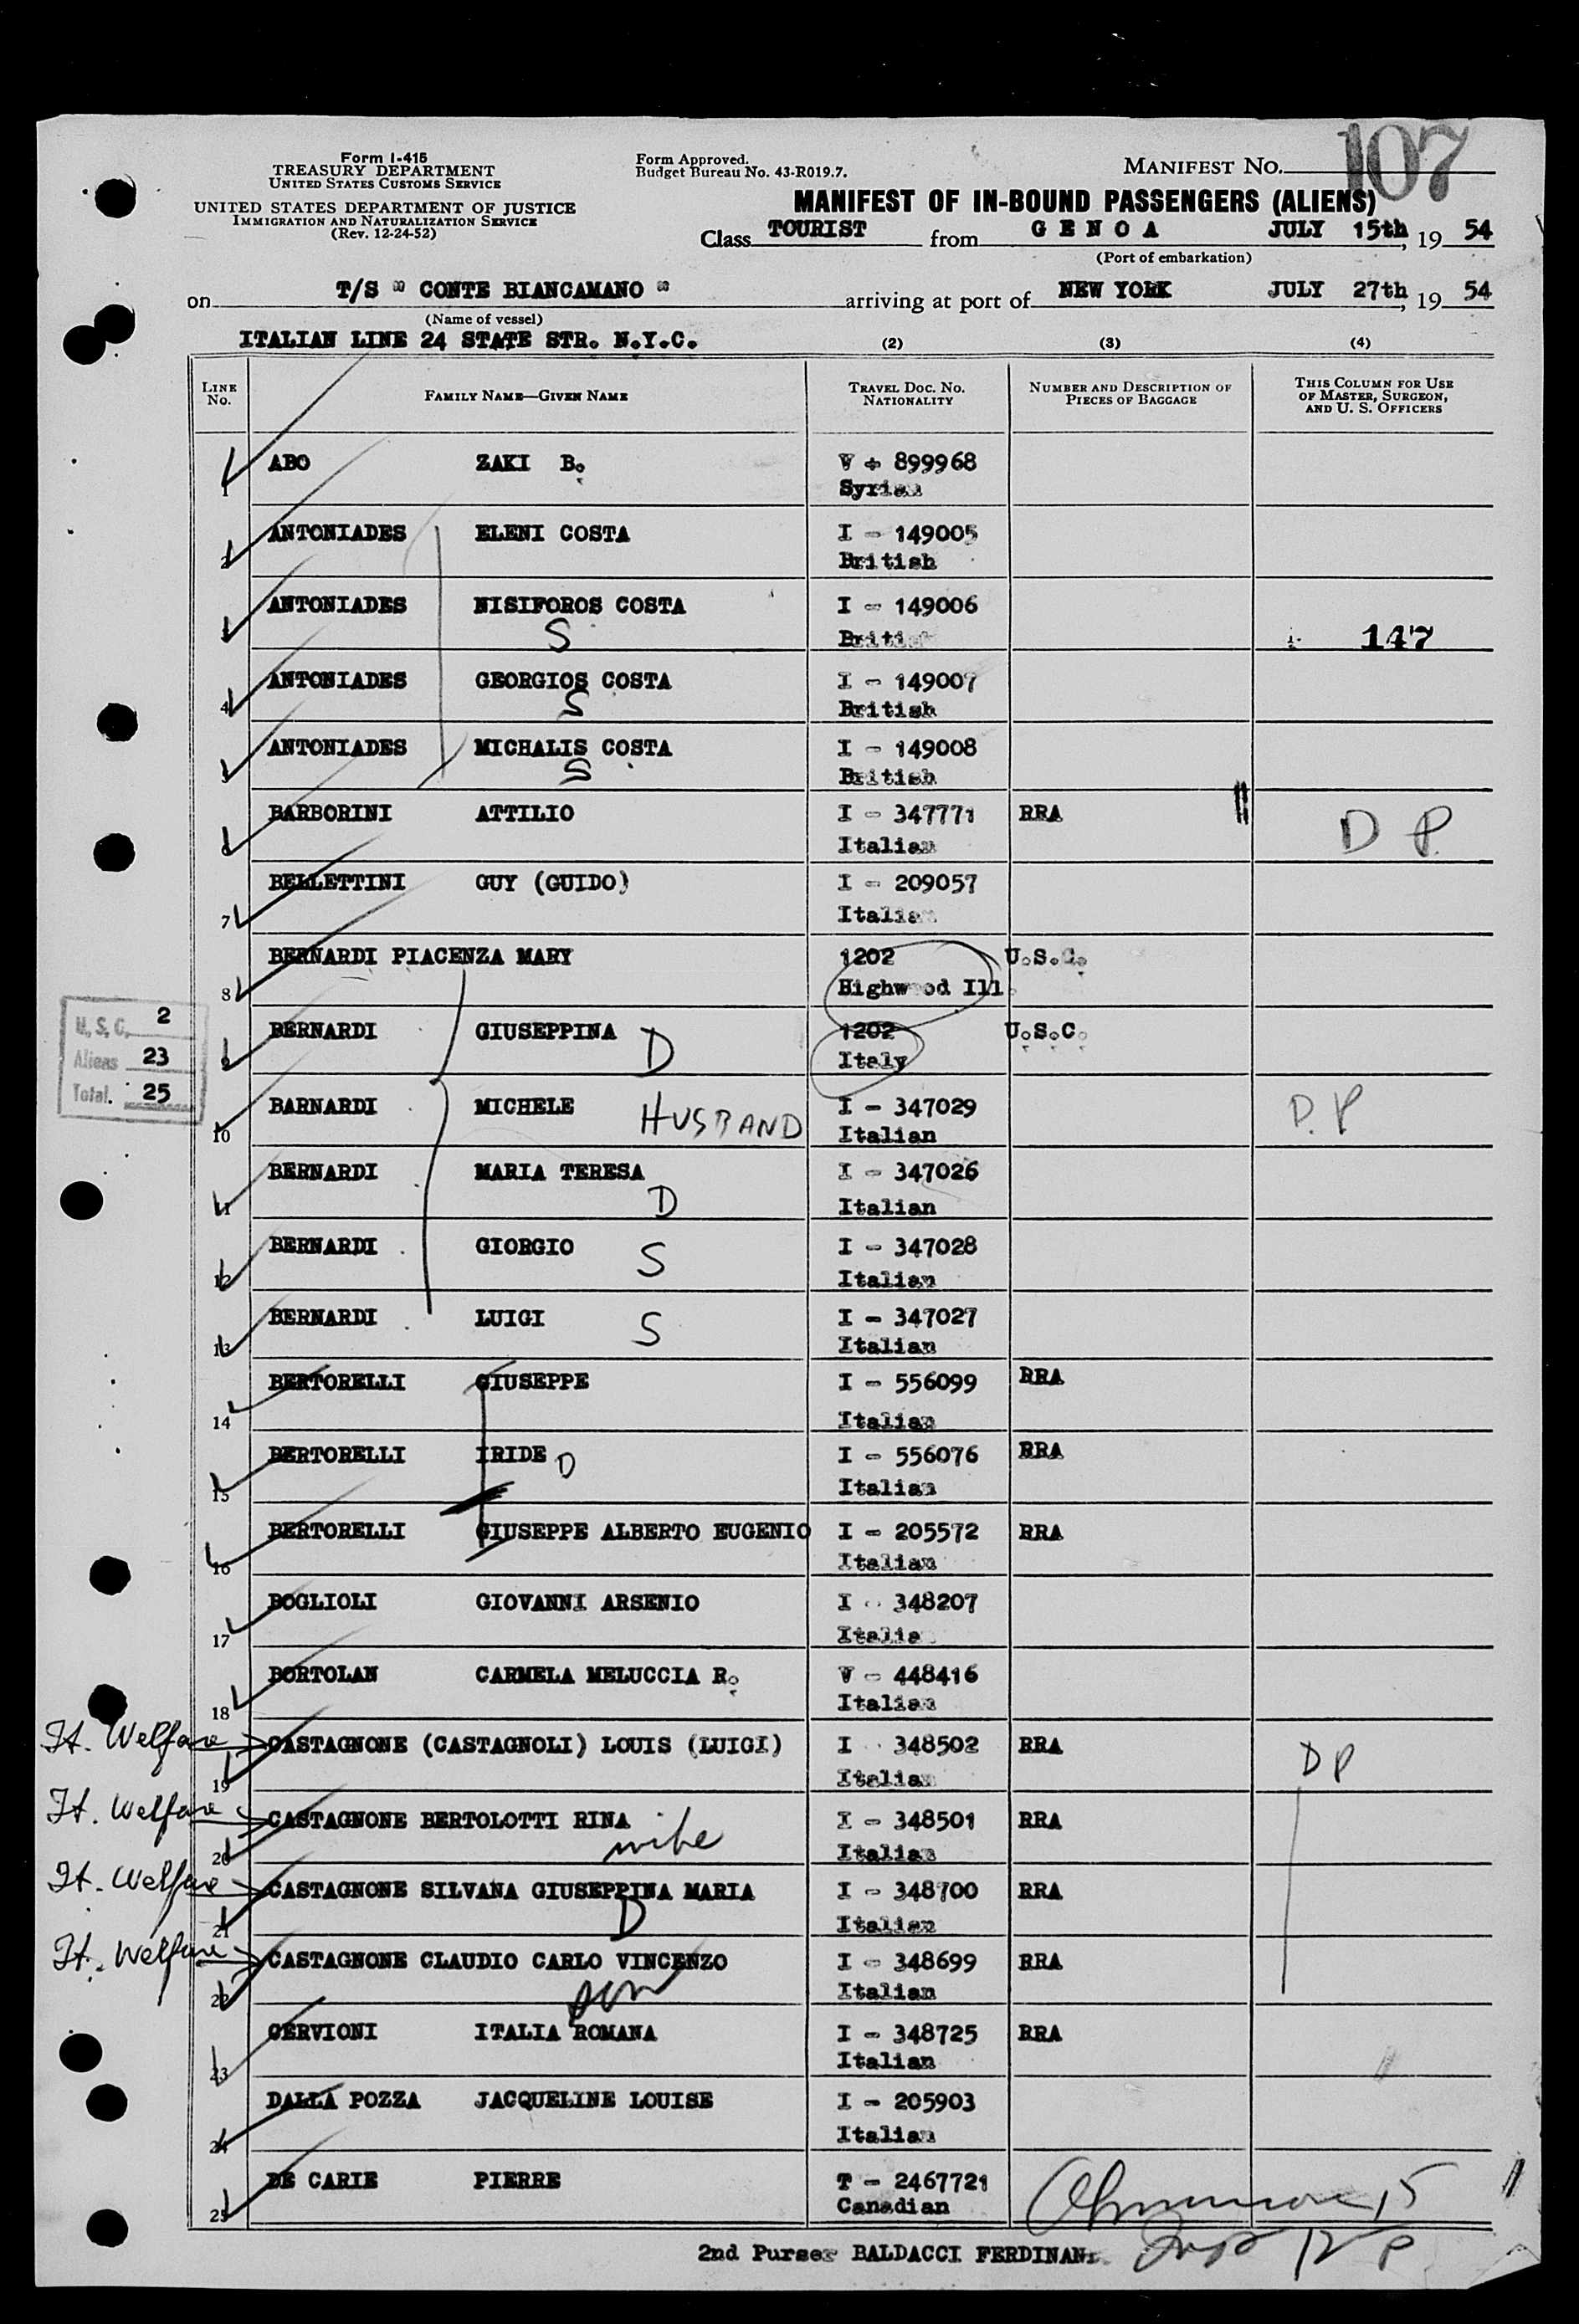 107
Form I-415
TREASURY DEPARTMENT
UNITED STATES CUSTOMS SERVICE
UNITED STATES DEPARTMENT OF JUSTICE
IMMIGRATION AND NATURALIZATION SERVICE
(Rev. 12-24-52)
Form Approved.
Budget Bureau No. 43-R019.7.
MANIFEST NO.
MANIFEST OF IN-BOUND PASSENGERS (ALIENS)
Class TOURIST from GENOA JULY 15th, 19 54
(Port of embarkation)
on T/S " CONTE BIANCAMANO " arriving at port of NEW YORK JULY 27th, 19 54
(Name of vessel)
ITALIAN LINE 24 STATE STR. N.Y.C. (2) (3) (4)
LINE No. FAMILY NAME—GIVEN NAME TRAVEL DOC. NO. NATIONALITY NUMBER AND DESCRIPTION OF PIECES OF BAGGAGE THIS COLUMN FOR USE OF MASTER, SURGEON, AND U. S. OFFICERS
ABO ZAKI B. V + 899968
1 Syrian
ANTONIADES ELENI COSTA I - 149005
2 British
ANTONIADES NISIFOROS COSTA I - 149006
3 S Briti 147
ANTONIADES GEORGIOS COSTA I - 149007
4 S British
ANTONIADES MICHALIS COSTA I - 149008
5 S British
BARBORINI ATTILIO I - 347771 RRA D P.
6 Italian
BELLETTINI GUY (GUIDO) I - 209057
7 Italian
BERNARDI PIACENZA MARY 1202 U.S.C.
8 Highwood Ill.
U.S.C. 2
Aliens 23
Total. 25
BERNARDI GIUSEPPINA D 1202 U.S.C.
9 Italy
BARNARDI MICHELE HUSBAND I - 347029 D.P
10 Italian
BERNARDI MARIA TERESA I - 347026
11 D Italian
BERNARDI GIORGIO S I - 347028
12 Italian
BERNARDI LUIGI S I - 347027
13 Italian
BERTORELLI GIUSEPPE I - 556099 RRA
14 Italian
BERTORELLI IRIDE D I - 556076 RRA
15 Italian
BERTORELLI GIUSEPPE ALBERTO EUGENIO I - 205572 RRA
16 Italian
BOGLIOLI GIOVANNI ARSENIO I - 348207
17 Italia
BORTOLAN CARMELA MELUCCIA R. V - 448416
18 Italian
It. Welfare CASTAGNONE (CASTAGNOLI) LOUIS (LUIGI) I 348502 RRA D P
19 Italian
It. Welfare CASTAGNONE BERTOLOTTI RINA I - 348501 RRA
20 wife Italian
It. Welfare CASTAGNONE SILVANA GIUSEPPINA MARIA I - 348700 RRA
21 D Italian
It. Welfare CASTAGNONE CLAUDIO CARLO VINCENZO I - 348699 RRA
22 son Italian
CERVIONI ITALIA ROMANA I - 348725 RRA
23 Italian
DALLA POZZA JACQUELINE LOUISE I - 205903
24 Italian
DE CARIE PIERRE T - 2467721
25 Canadian
2nd Purser BALDACCI FERDINAN